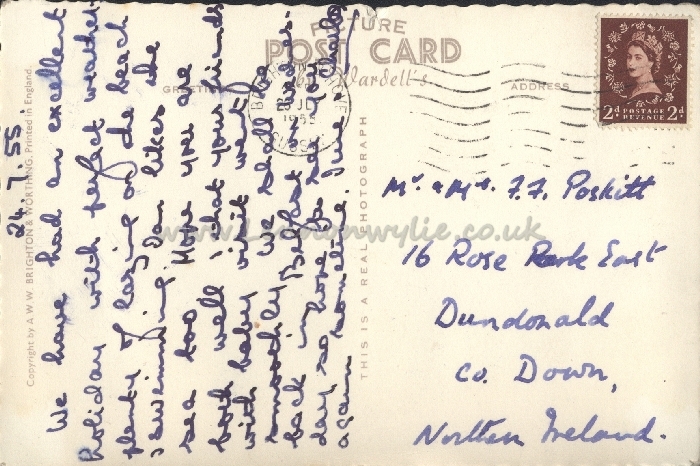 PICTURE
POST CARD
Wardell's
ADDRESS
THIS IS A REAL PHOTOGRAPH
Copyright by A.W.W. BRIGHTON & WORTHING. Printed in England.
1955
SUSSEX
2d POSTAGE REVENUE 2d
24.7.55.
We have had an excellent
holiday with perfect weather
plenty of lazing on the beach
& swimming. Ian likes the
sea too. Hope you are
both well & that your friends
with baby visit went
smoothly. We shall be
back in Belfast Wednes-
day, so hope to see you
again sometime. June & Charles
Mr. & Mrs. F.F. Poskitt
16 Rose Park East
Dundonald
Co. Down,
Northern Ireland.
www.simonwylie.co.uk